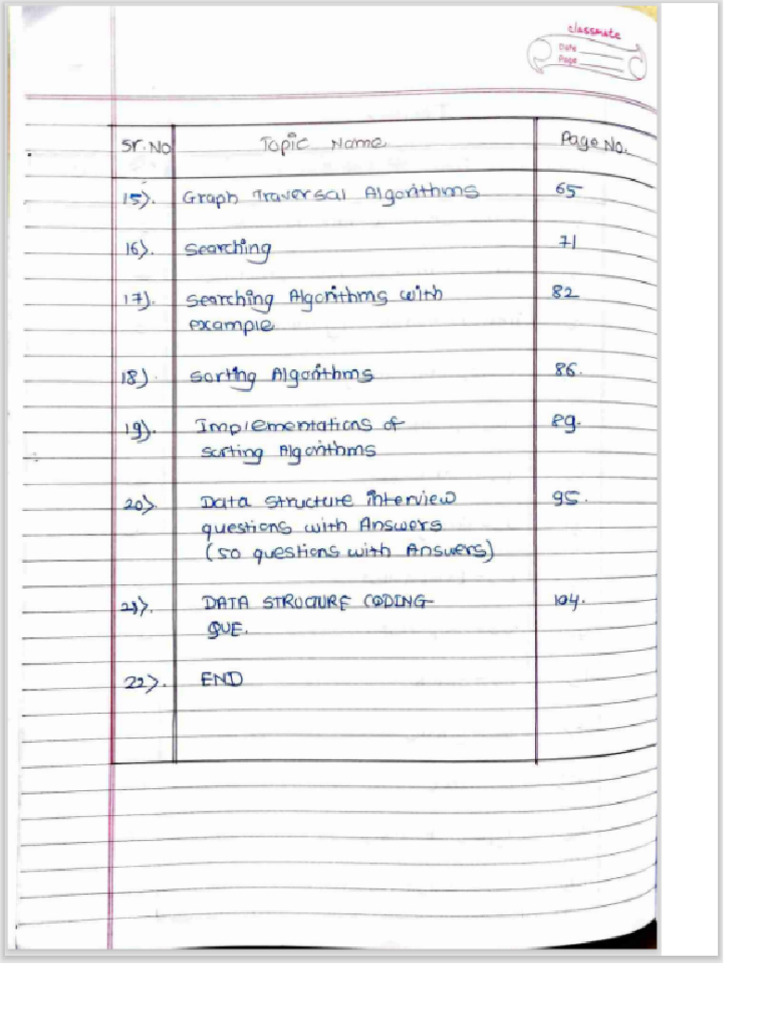 classmate
Date
Page
Sr.No Topic Name Page No.
15). Graph Traversal Algorithms 65
16). Searching 71
17). Searching Algorithms with 82
example
18). Sorting Algorithms 86.
19). Implementations of 89.
Sorting Algorithms
20). Data Structure interview 95.
questions with Answers
(50 questions with Answers)
21). DATA STRUCTURE CODING 104.
QUE.
22). END